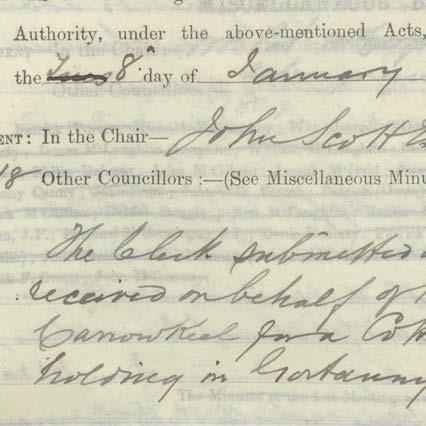 Authority, under the above-mentioned Acts,
the 8. day of January
ENT: In the Chair— John Scott
18 Other Councillors :—(See Miscellaneous Minu
The Clerk submitted
received on behalf of
Carrowkeel for a Cott
holding in